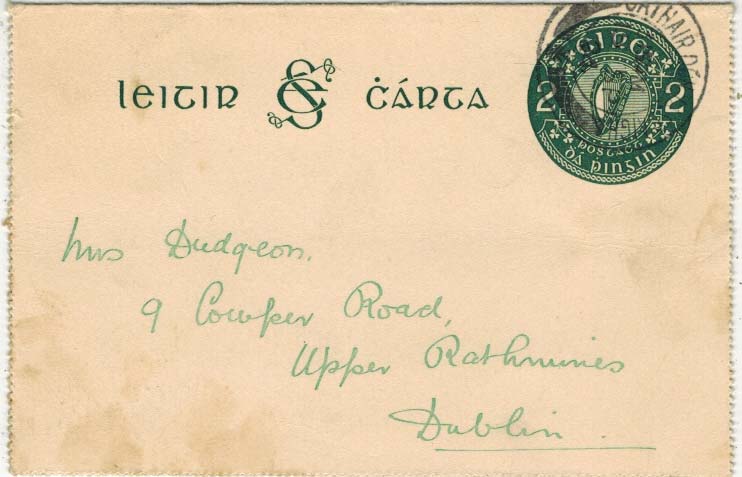 leitir SÉ ċárta
éire
2 2
postage
dá pingin
Mrs Dudgeon.
9 Cowper Road,
Upper Rathmines
Dublin.